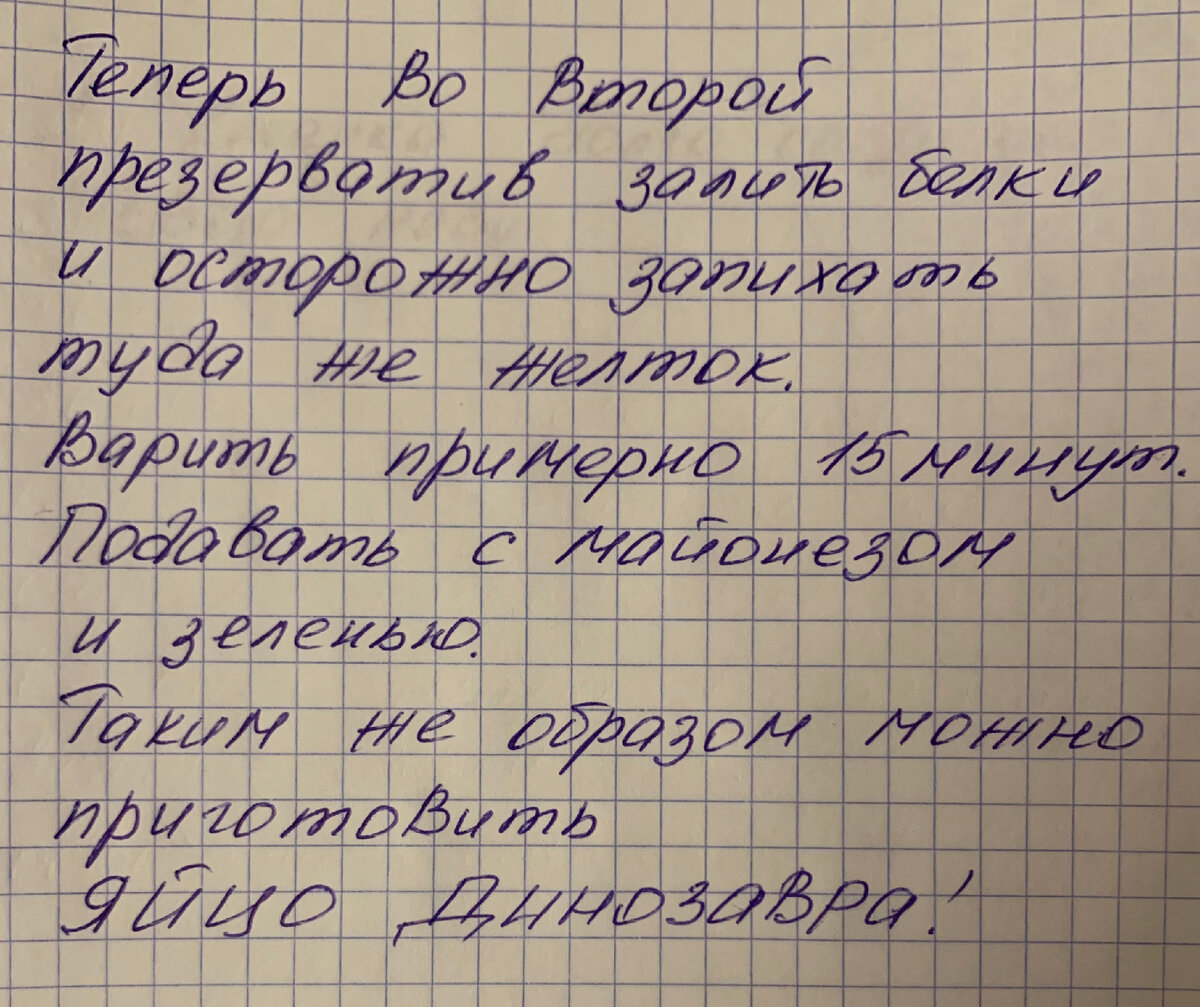 Теперь во второй
презерватив залить белки
и осторожно запихать
туда же желток.
Варить примерно 15 минут.
Подавать с майонезом
и зеленью.
Таким же образом можно
приготовить
яйцо Динозавра!